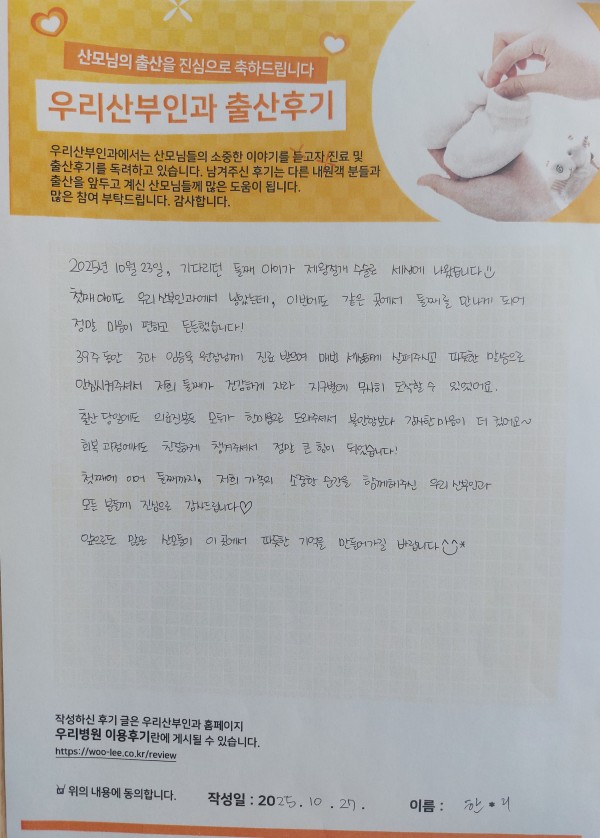 산모님의 출산을 진심으로 축하드립니다
우리산부인과 출산후기
우리산부인과에서는 산모님들의 소중한 이야기를 듣고자 진료 및
출산후기를 독려하고 있습니다. 남겨주신 후기는 다른 내원객 분들과
출산을 앞두고 계신 산모님들께 많은 도움이 됩니다.
많은 참여 부탁드립니다. 감사합니다.
2025년 10월 23일, 기다리던 둘째 아이가 제왕절개 수술로 세상에 나왔답니다
첫째아이도 우리산부인과에서 낳았는데, 이번에도 같은 곳에서 둘째를 만나게 되어
정말 마음이 편하고 든든했습니다!
39주 동안 3과 원장님께 진료 받으며 매번 세심하게 살펴주시고 따뜻한 말씀으로
안심시켜주셔서 저희 둘째가 건강하게 자라 지구별에 무사히 도착할 수 있었어요.
출산 당일에도 의료진분들 모두가 한마음으로 도와주셔서 불안함보다 감사한 마음이 더 컸어요~
회복 과정에서도 친절하게 챙겨주셔서 정말 큰 힘이 되었습니다!
첫째에 이어 둘째까지, 저희 가족의 소중한 순간을 함께해주신 우리 산부인과
모든 분들께 진심으로 감사드립니다♡
앞으로도 많은 산모들이 이 곳에서 따뜻한 기억을 만들어가길 바랍니다 ^^*
작성하신 후기 글은 우리산부인과 홈페이지
우리병원 이용후기란에 게시될 수 있습니다.
https://woo-lee.co.kr/review
☑ 위의 내용에 동의합니다.
작성일 : 2025. 10. 27.
이름 : 한*리